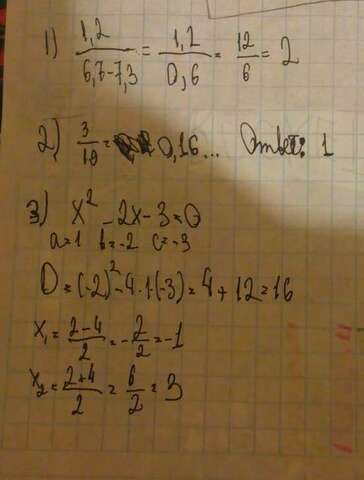 1) 1,2/(6,7-7,3) = 1,2/0,6 = 12/6 = 2
2) 3/10 = 0,16... Ответ: 1
3) x² - 2x - 3 = 0
a=1 b=-2 c=-3
D = (-2)² - 4·1·(-3) = 4 + 12 = 16
x₁ = (2-4)/2 = -2/2 = -1
x₂ = (2+4)/2 = 6/2 = 3